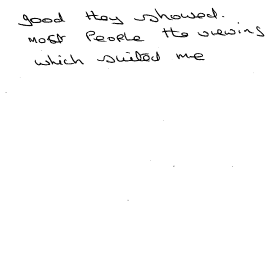 good they showed.
most People the viewing
which suited me